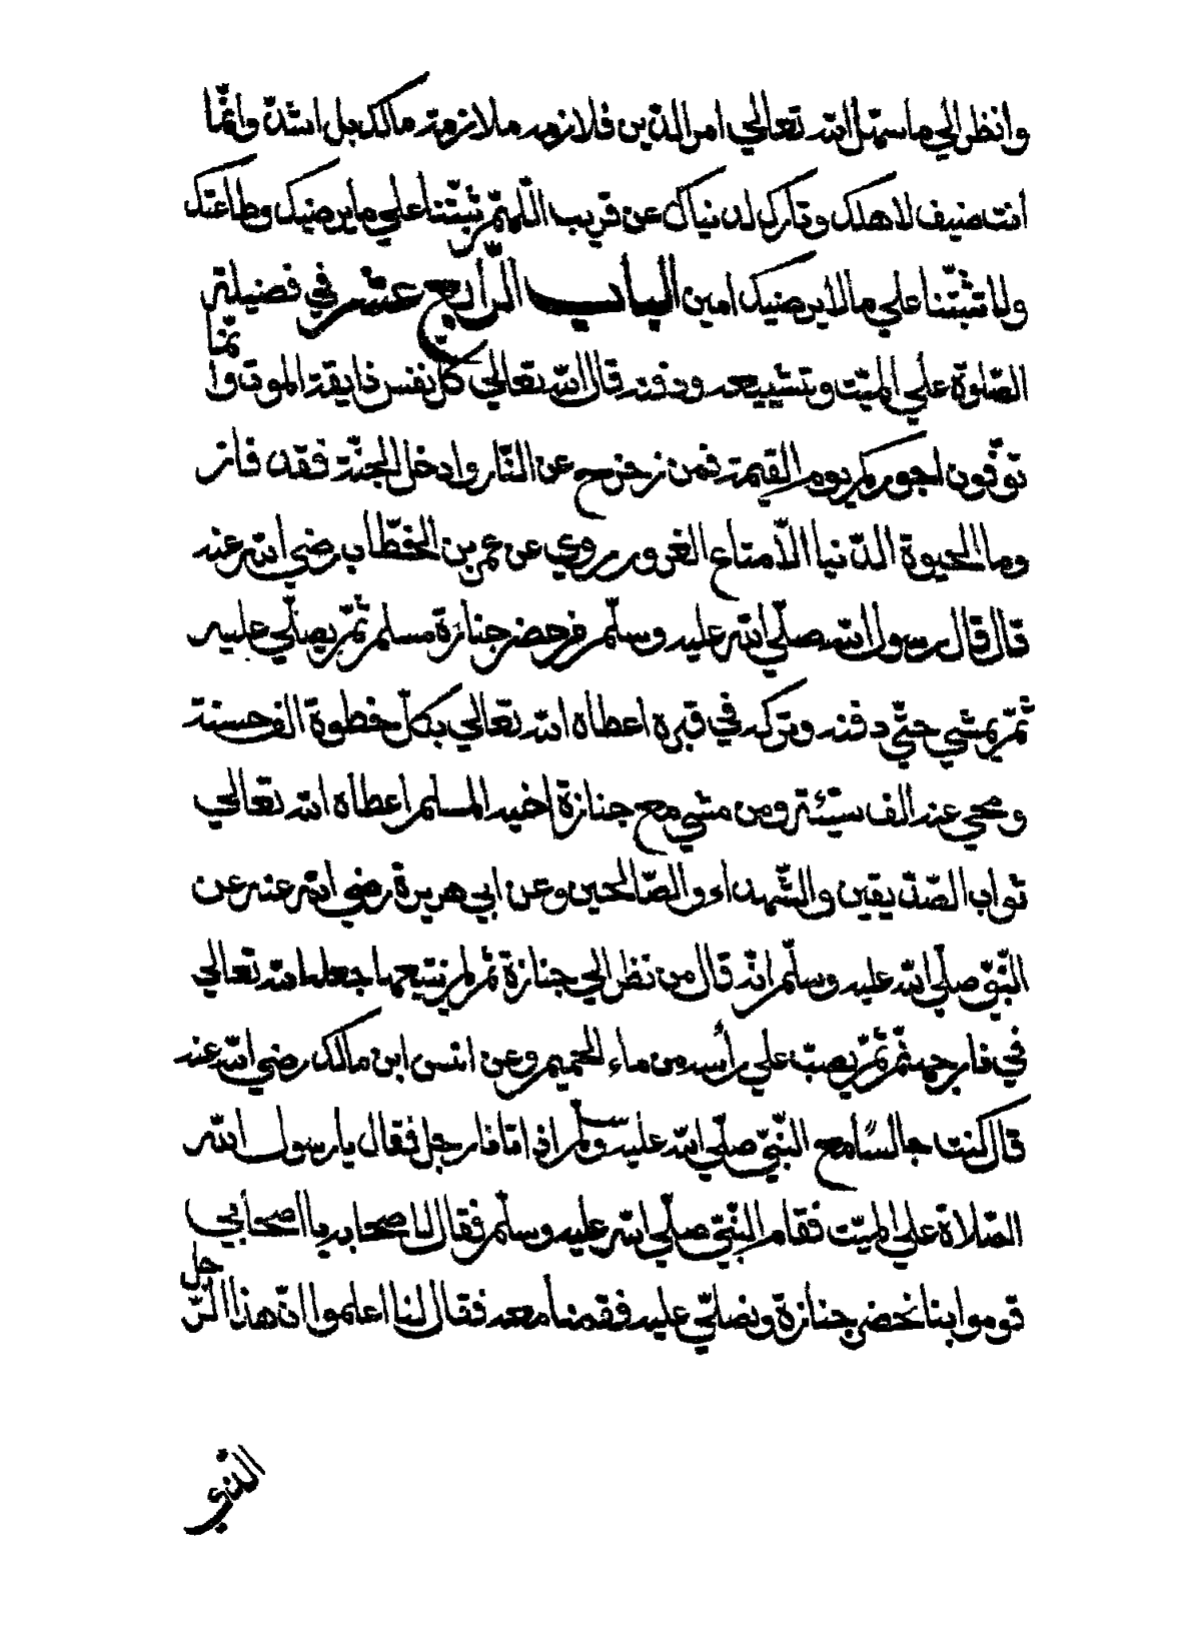 وانظر الي ما سهّل الله تعالي امر الدّين فلازمه ملازمة مالك بل اشدّ وانّما
أنت ضيف لاهلك وتارك لدنياك عن قريب اللّهمّ ثبّتنا علي ما يرضيك وطاعتك
ولا تثبّتنا علي ما لا يرضيك امين الباب الرّابع عشر في فضيلة
الصّلوة علي الميّت وتشييعه ودفنه قال الله تعالي كلّ نفس ذايقة الموت وانّما
توفّون اجوركم يوم القيمة فمن زحزح عن النّار وادخل الجنّة فقد فاز
وما الحيوة الدّنيا الّا متاع الغرور روي عن عمر بن الخطّاب رضي الله عنه
قال قال رسول الله صلّي الله عليه وسلّم من حضر جنازة مسلم ثمّ يصلّي عليه
ثمّ يمشي حتّي دفنه وتركه في قبره اعطاه الله تعالي بكلّ خطوة الف حسنة
ومحي عنه الف سيّئة ومن مشي مع جنازة اخيه المسلم اعطاه الله تعالي
ثواب الصّدّيقين والشّهداء والصّالحين وعن ابي هريرة رضي الله عنه عن
النّبيّ صلّي الله عليه وسلّم انّه قال من نظر الي جنازة ثمّ لم يتبعها جعله الله تعالي
في نار جهنّم ثمّ يصبّ علي رأسه من ماء الحميم وعن انس ابن مالك رضي الله عنه
قال كنت جالسًا مع النّبيّ صلّي الله عليه وسلّم اذ اتانا رجل فقال يا رسول الله
الصّلاة علي الميّت فقام النّبيّ صلّي الله عليه وسلّم فقال لاصحابه يا اصحابي
قوموا بنا نحضر جنازة ونصلّي عليه فقمنا معه فقال لنا اعلموا انّ هذا الرّجل
الّذي